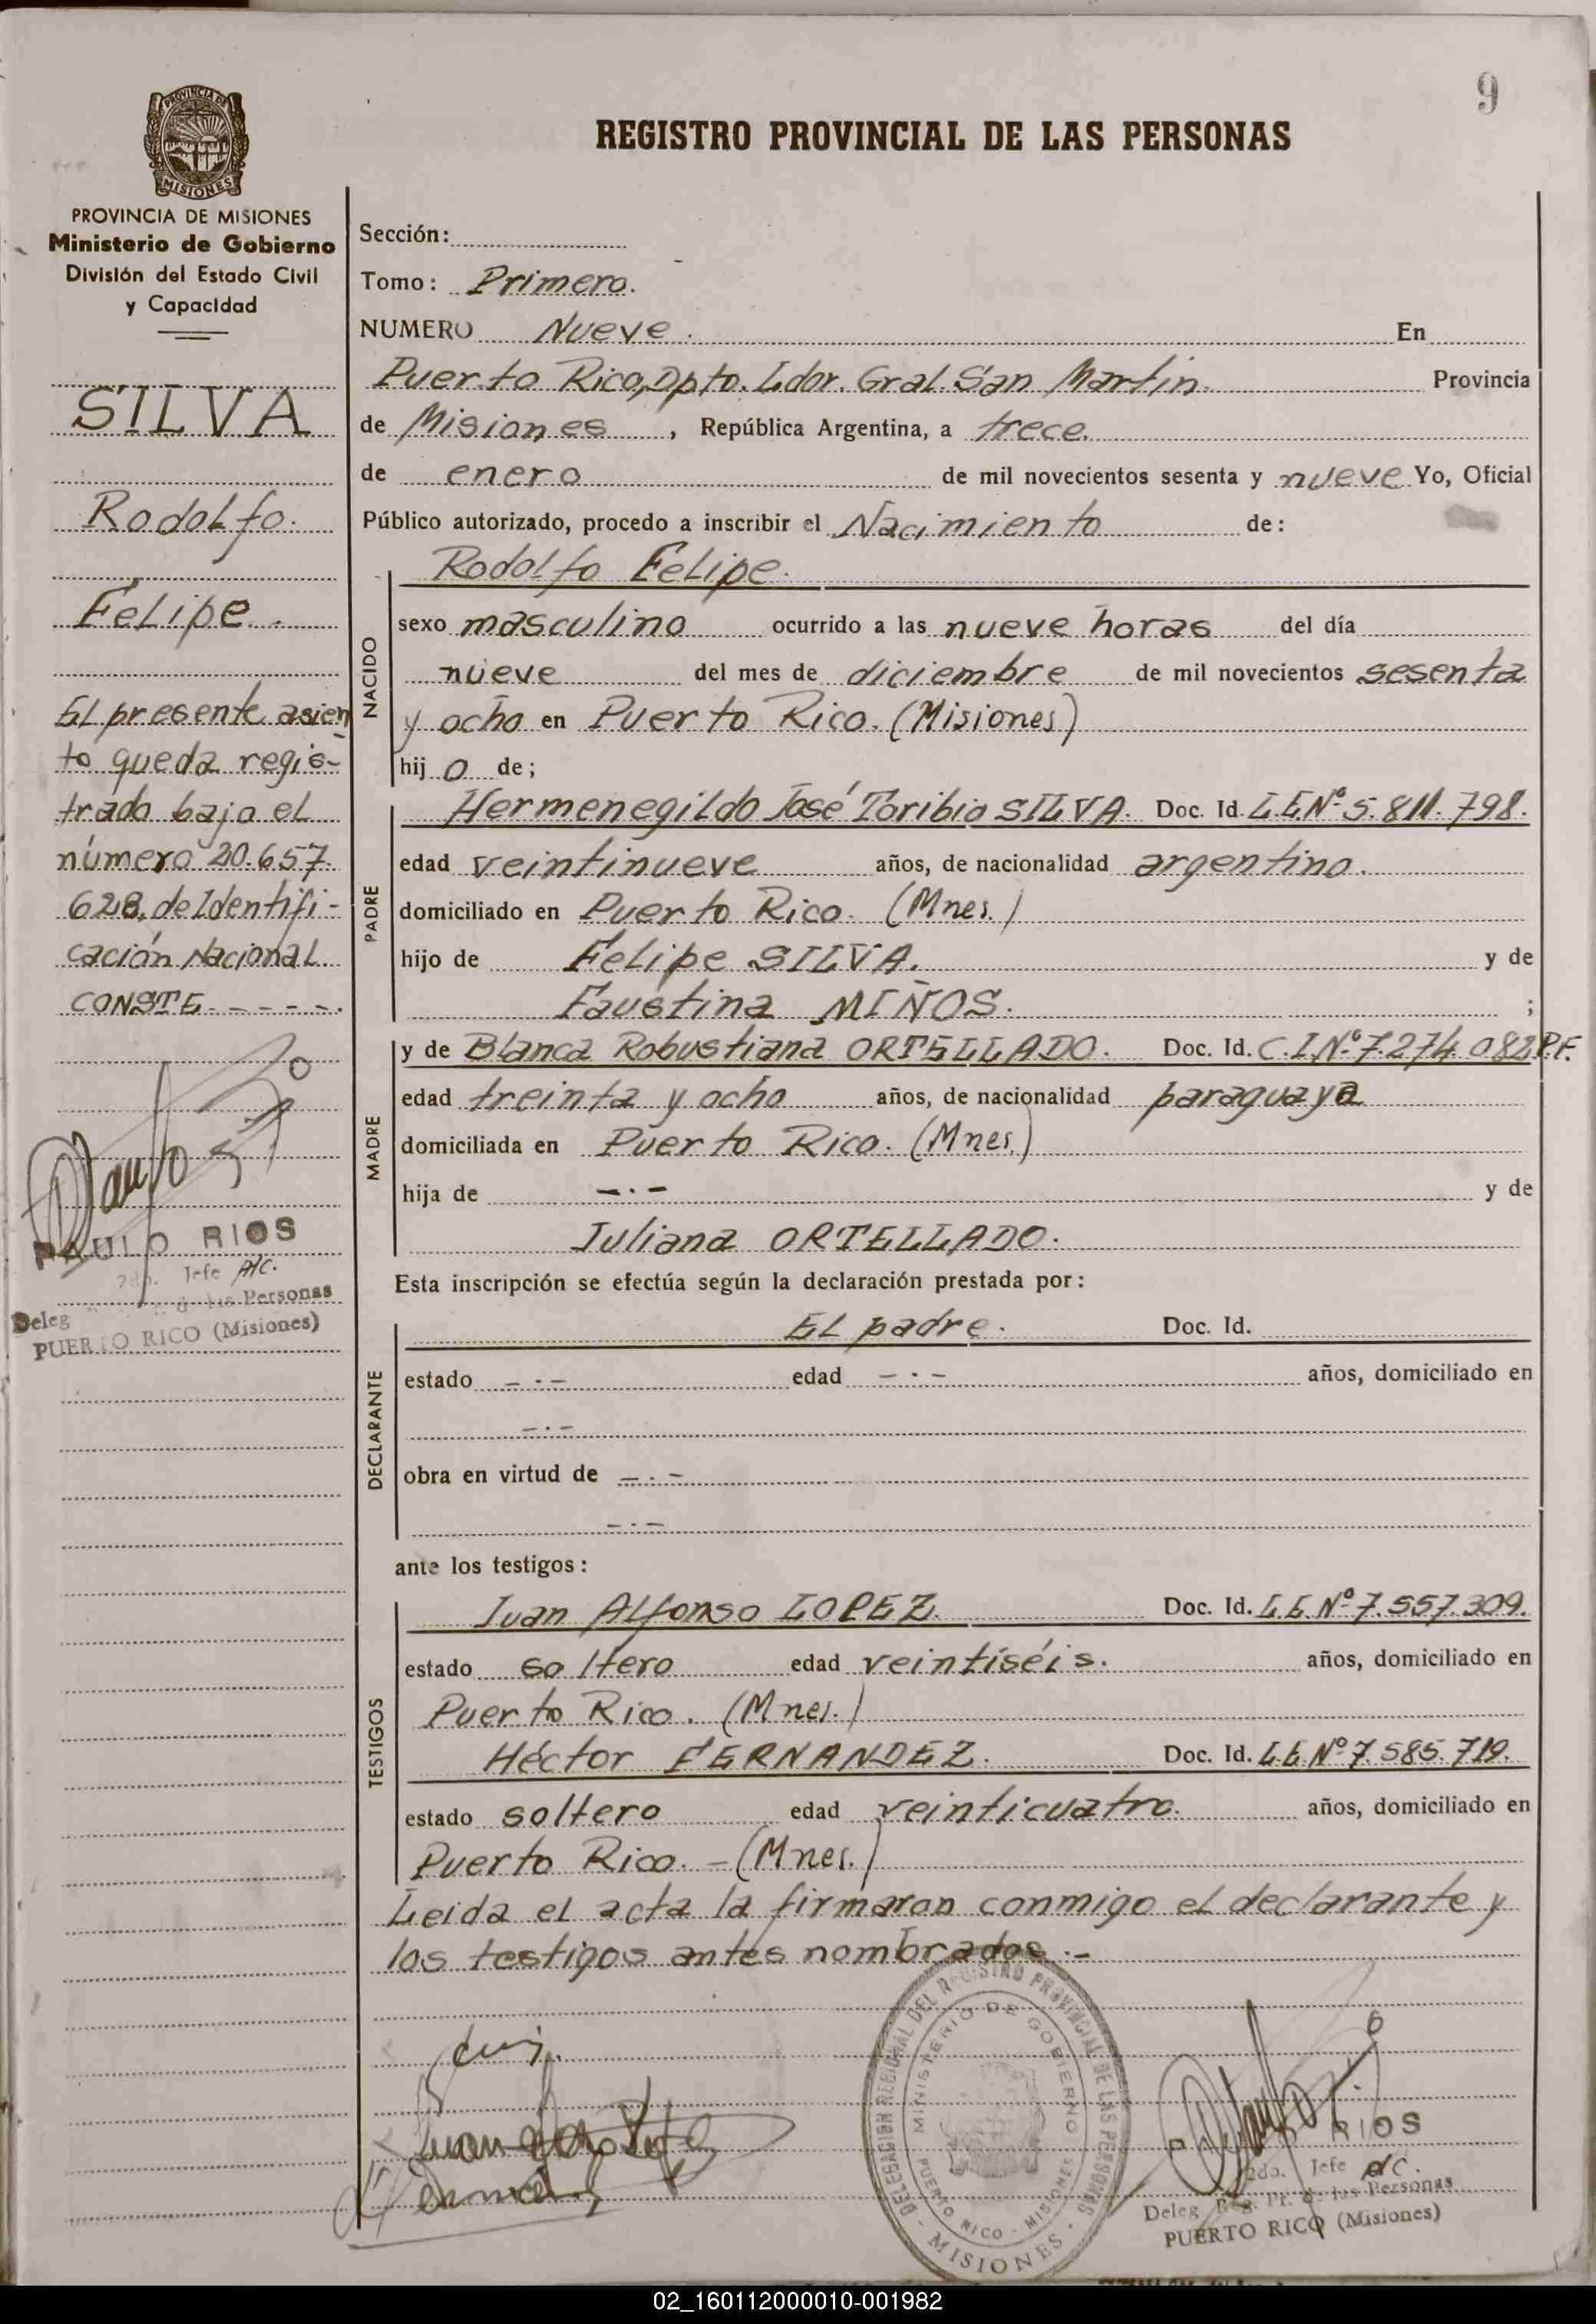 9
REGISTRO PROVINCIAL DE LAS PERSONAS
PROVINCIA DE
MISIONES
PROVINCIA DE MISIONES
Ministerio de Gobierno
División del Estado Civil
y Capacidad
SILVA
Rodolfo.
Felipe.
El presente asien
to queda regis-
trado bajo el
número 20.657.
628. de Identifi-
cación Nacional
CONSTE - - - -.
PAULO RIOS
2do. Jefe A/C.
Deleg de las Personas
PUERTO RICO (Misiones)
Sección:
Tomo: Primero.
NUMERO Nueve. En
Puerto Rico, Dpto. Ldor. Gral. San Martin. Provincia
de Misiones, República Argentina, a trece.
de enero de mil novecientos sesenta y nueve Yo, Oficial
Público autorizado, procedo a inscribir el Nacimiento de:
Rodolfo Felipe.
NACIDO
sexo masculino ocurrido a las nueve horas del día
nueve del mes de diciembre de mil novecientos sesenta
y ocho en Puerto Rico. (Misiones)
hij o de;
PADRE
Hermenegildo José Toribio SILVA. Doc. Id. L.E.Nº 5.811.798.
edad veintinueve años, de nacionalidad argentino.
domiciliado en Puerto Rico. (Mnes.)
hijo de Felipe SILVA. y de
Faustina MIÑOS. ;
MADRE
y de Blanca Robustiana ORTELLADO. Doc. Id. C.I.Nº 7.274.082 P.F.
edad treinta y ocho años, de nacionalidad paraguaya
domiciliada en Puerto Rico. (Mnes.)
hija de -.- y de
Juliana ORTELLADO.
Esta inscripción se efectúa según la declaración prestada por:
DECLARANTE
El padre. Doc. Id.
estado -.- edad -.- años, domiciliado en
-.-
obra en virtud de -.-
-.-
ante los testigos:
TESTIGOS
Juan Alfonso LOPEZ. Doc. Id. L.E.Nº 7.557.309.
estado soltero edad veintiséis. años, domiciliado en
Puerto Rico. (Mnes.)
Héctor FERNANDEZ. Doc. Id. L.E.Nº 7.585.719.
estado soltero edad veinticuatro. años, domiciliado en
Puerto Rico. - (Mnes.)
Leida el acta la firmaron conmigo el declarante y
los testigos antes nombrados.-
DELEGACION REGIONAL DEL REGISTRO PROVINCIAL DE LAS PERSONAS
- MISIONES -
MINISTERIO DE GOBIERNO
PUERTO RICO - MISIONES
RIOS
2do. Jefe A/C.
Deleg Reg. Pr. de las Personas
PUERTO RICO (Misiones)
02_160112000010-001982